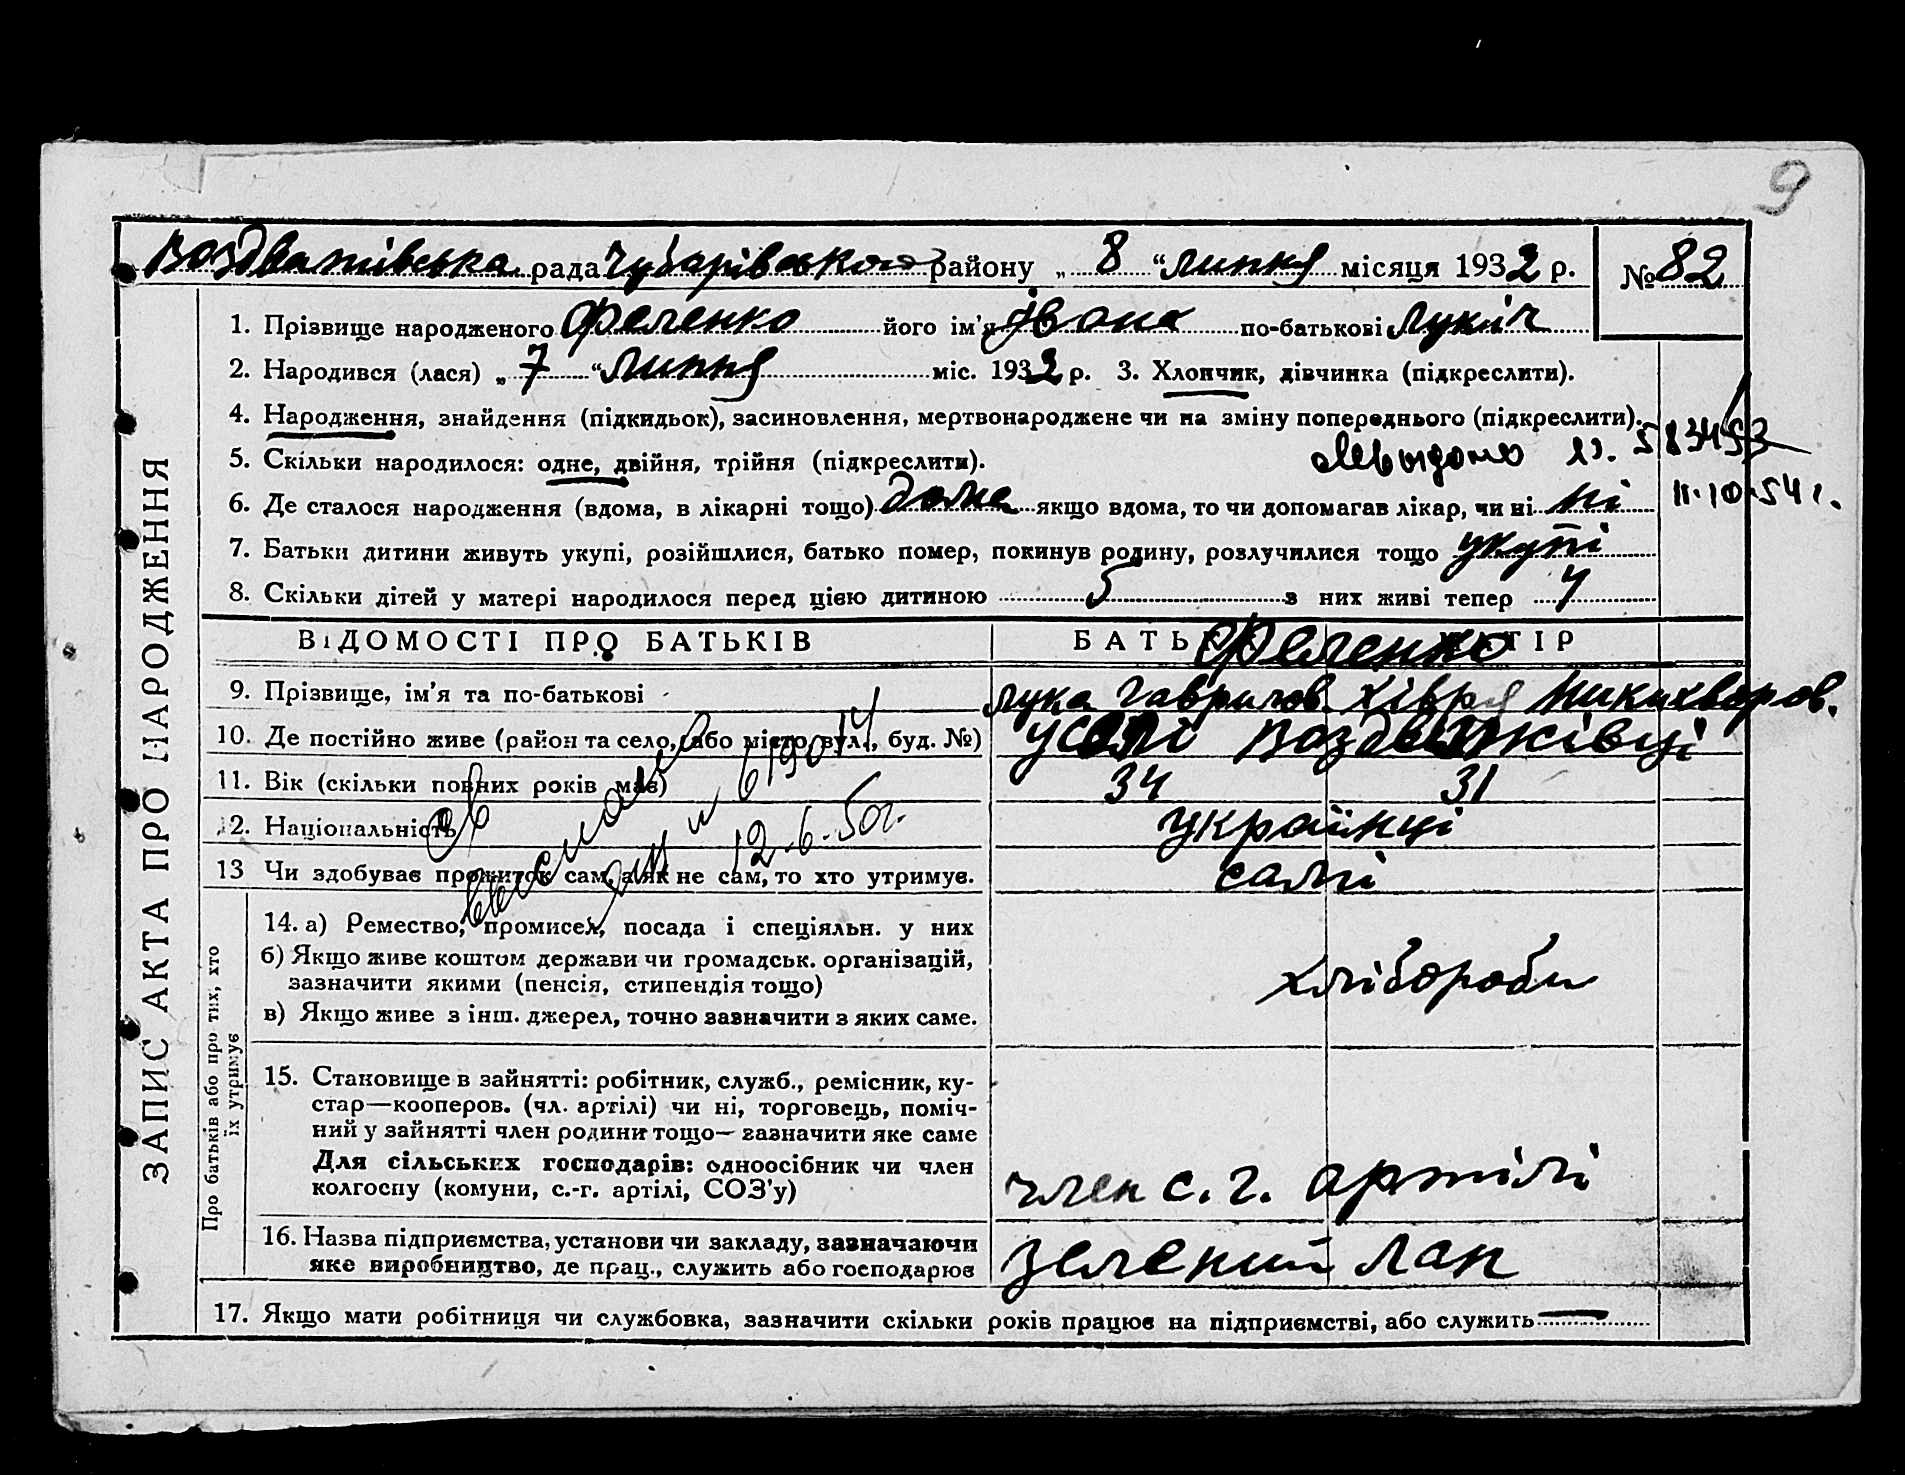 9
Воздвижівська рада Чубарівського району „ 8 “ липня місяця 1932 р. № 82
1. Прізвище народженого Феленко його ім'я Івана по-батькові Лукич
2. Народився (лася) „ 7 “ липня міс. 1932 р. 3. Хлопчик, дівчинка (підкреслити).
4. Народження, знайдення (підкидьок), засиновлення, мертвонароджене чи на зміну попереднього (підкреслити).
5. Скільки народилося: одне, двійня, трійня (підкреслити).
11.10.54 г.
6. Де сталося народження (вдома, в лікарні тощо) дома якщо вдома, то чи допомагав лікар, чи ні ні
7. Батьки дитини живуть укупі, розійшлися, батько помер, покинув родину, розлучилися тощо укупі
8. Скільки дітей у матері народилося перед цією дитиною 5 з них живі тепер 4
ВІДОМОСТІ ПРО БАТЬКІВ БАТЬКО МАТІР
Феленко
9. Прізвище, ім'я та по-батькові Лука Гаврилов. Хівря Никихворов.
10. Де постійно живе (район та село, або місто, вул., буд. №) у селі Воздвижківці
11. Вік (скільки повних років має) 34 31
12. Національність українці
13 Чи здобуває прожиток сам, а як не сам, то хто утримує. самі
12.6.50 г.
14. а) Ремество, промисел, посада і спеціяльн. у них
б) Якщо живе коштом держави чи громадськ. організацій,
зазначити якими (пенсія, стипендія тощо)
хлібороби
в) Якщо живе з інш. джерел, точно зазначити з яких саме.
15. Становище в зайнятті: робітник, служб., ремісник, ку-
стар—кооперов. (чл. артілі) чи ні, торговець, поміч-
ний у зайнятті член родини тощо— зазначити яке саме
Для сільських господарів: одноосібник чи член
колгоспу (комуни, с.-г. артілі, СОЗ'у)
член с. г. артілі
16. Назва підприємства, установи чи закладу, зазначаючи
яке виробництво, де прац., служить або господарює
зелений лан
17. Якщо мати робітниця чи службовка, зазначити скільки років працює на підприємстві, або служить —
ЗАПИС АКТА ПРО НАРОДЖЕННЯ
Про батьків або про тих, хто
їх утримує